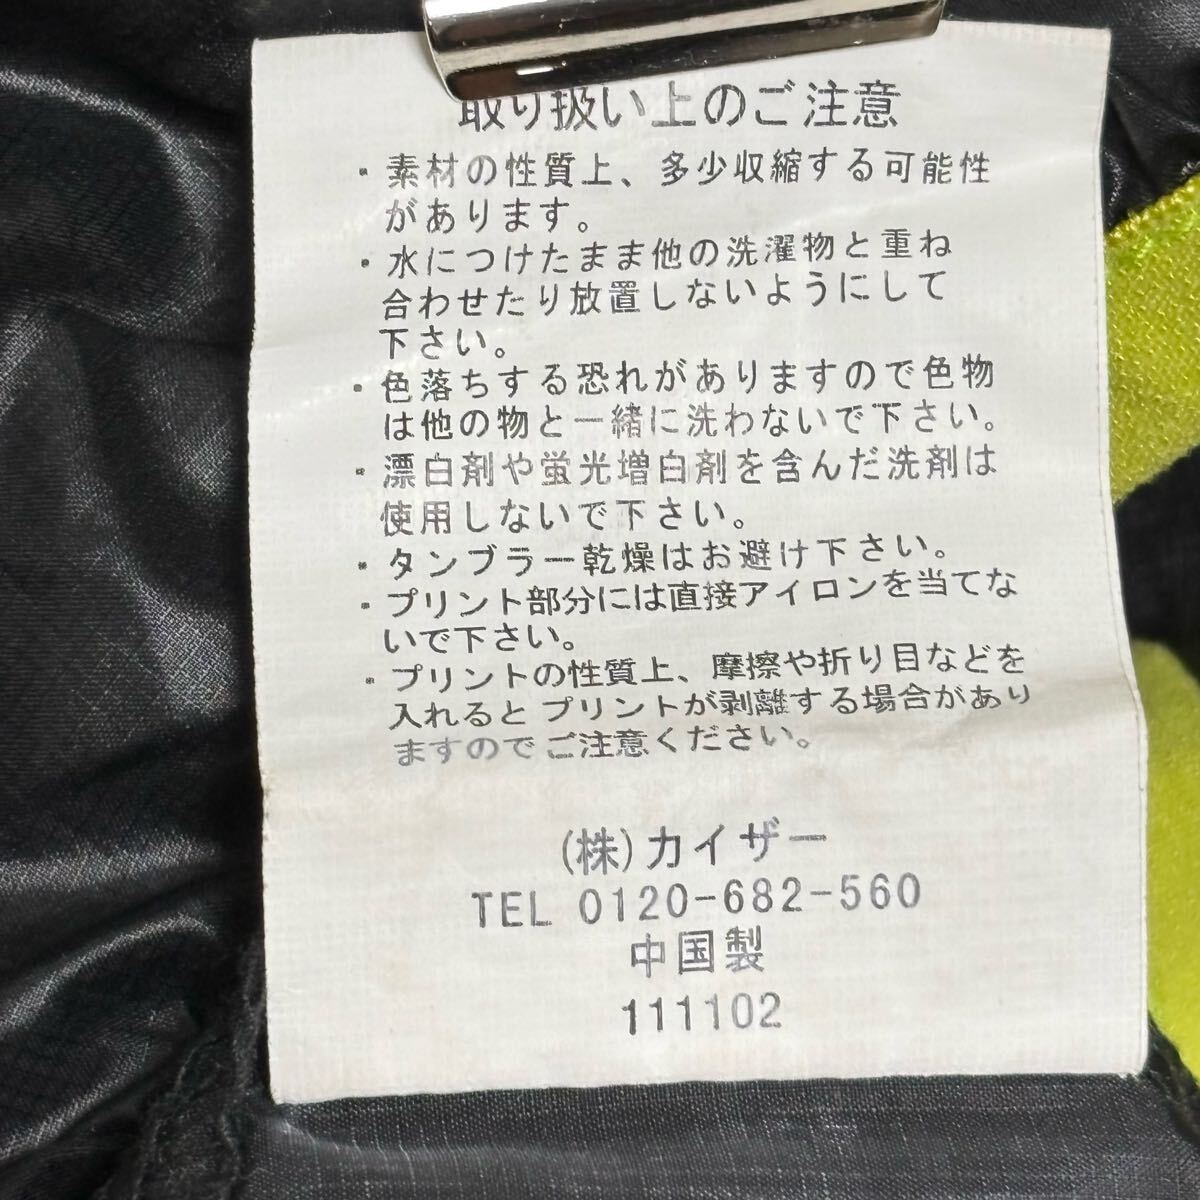 取り扱い上のご注意
・素材の性質上、多少収縮する可能性
があります。
・水につけたまま他の洗濯物と重ね
合わせたり放置しないようにして
下さい。
・色落ちする恐れがありますので色物
は他の物と一緒に洗わないで下さい。
・漂白剤や蛍光増白剤を含んだ洗剤は
使用しないで下さい。
・タンブラー乾燥はお避け下さい。
・プリント部分には直接アイロンを当てな
いで下さい。
・プリントの性質上、摩擦や折り目などを
入れるとプリントが剥離する場合があり
ますのでご注意ください。
(株)カイザー
TEL 0120-682-560
中国製
111102